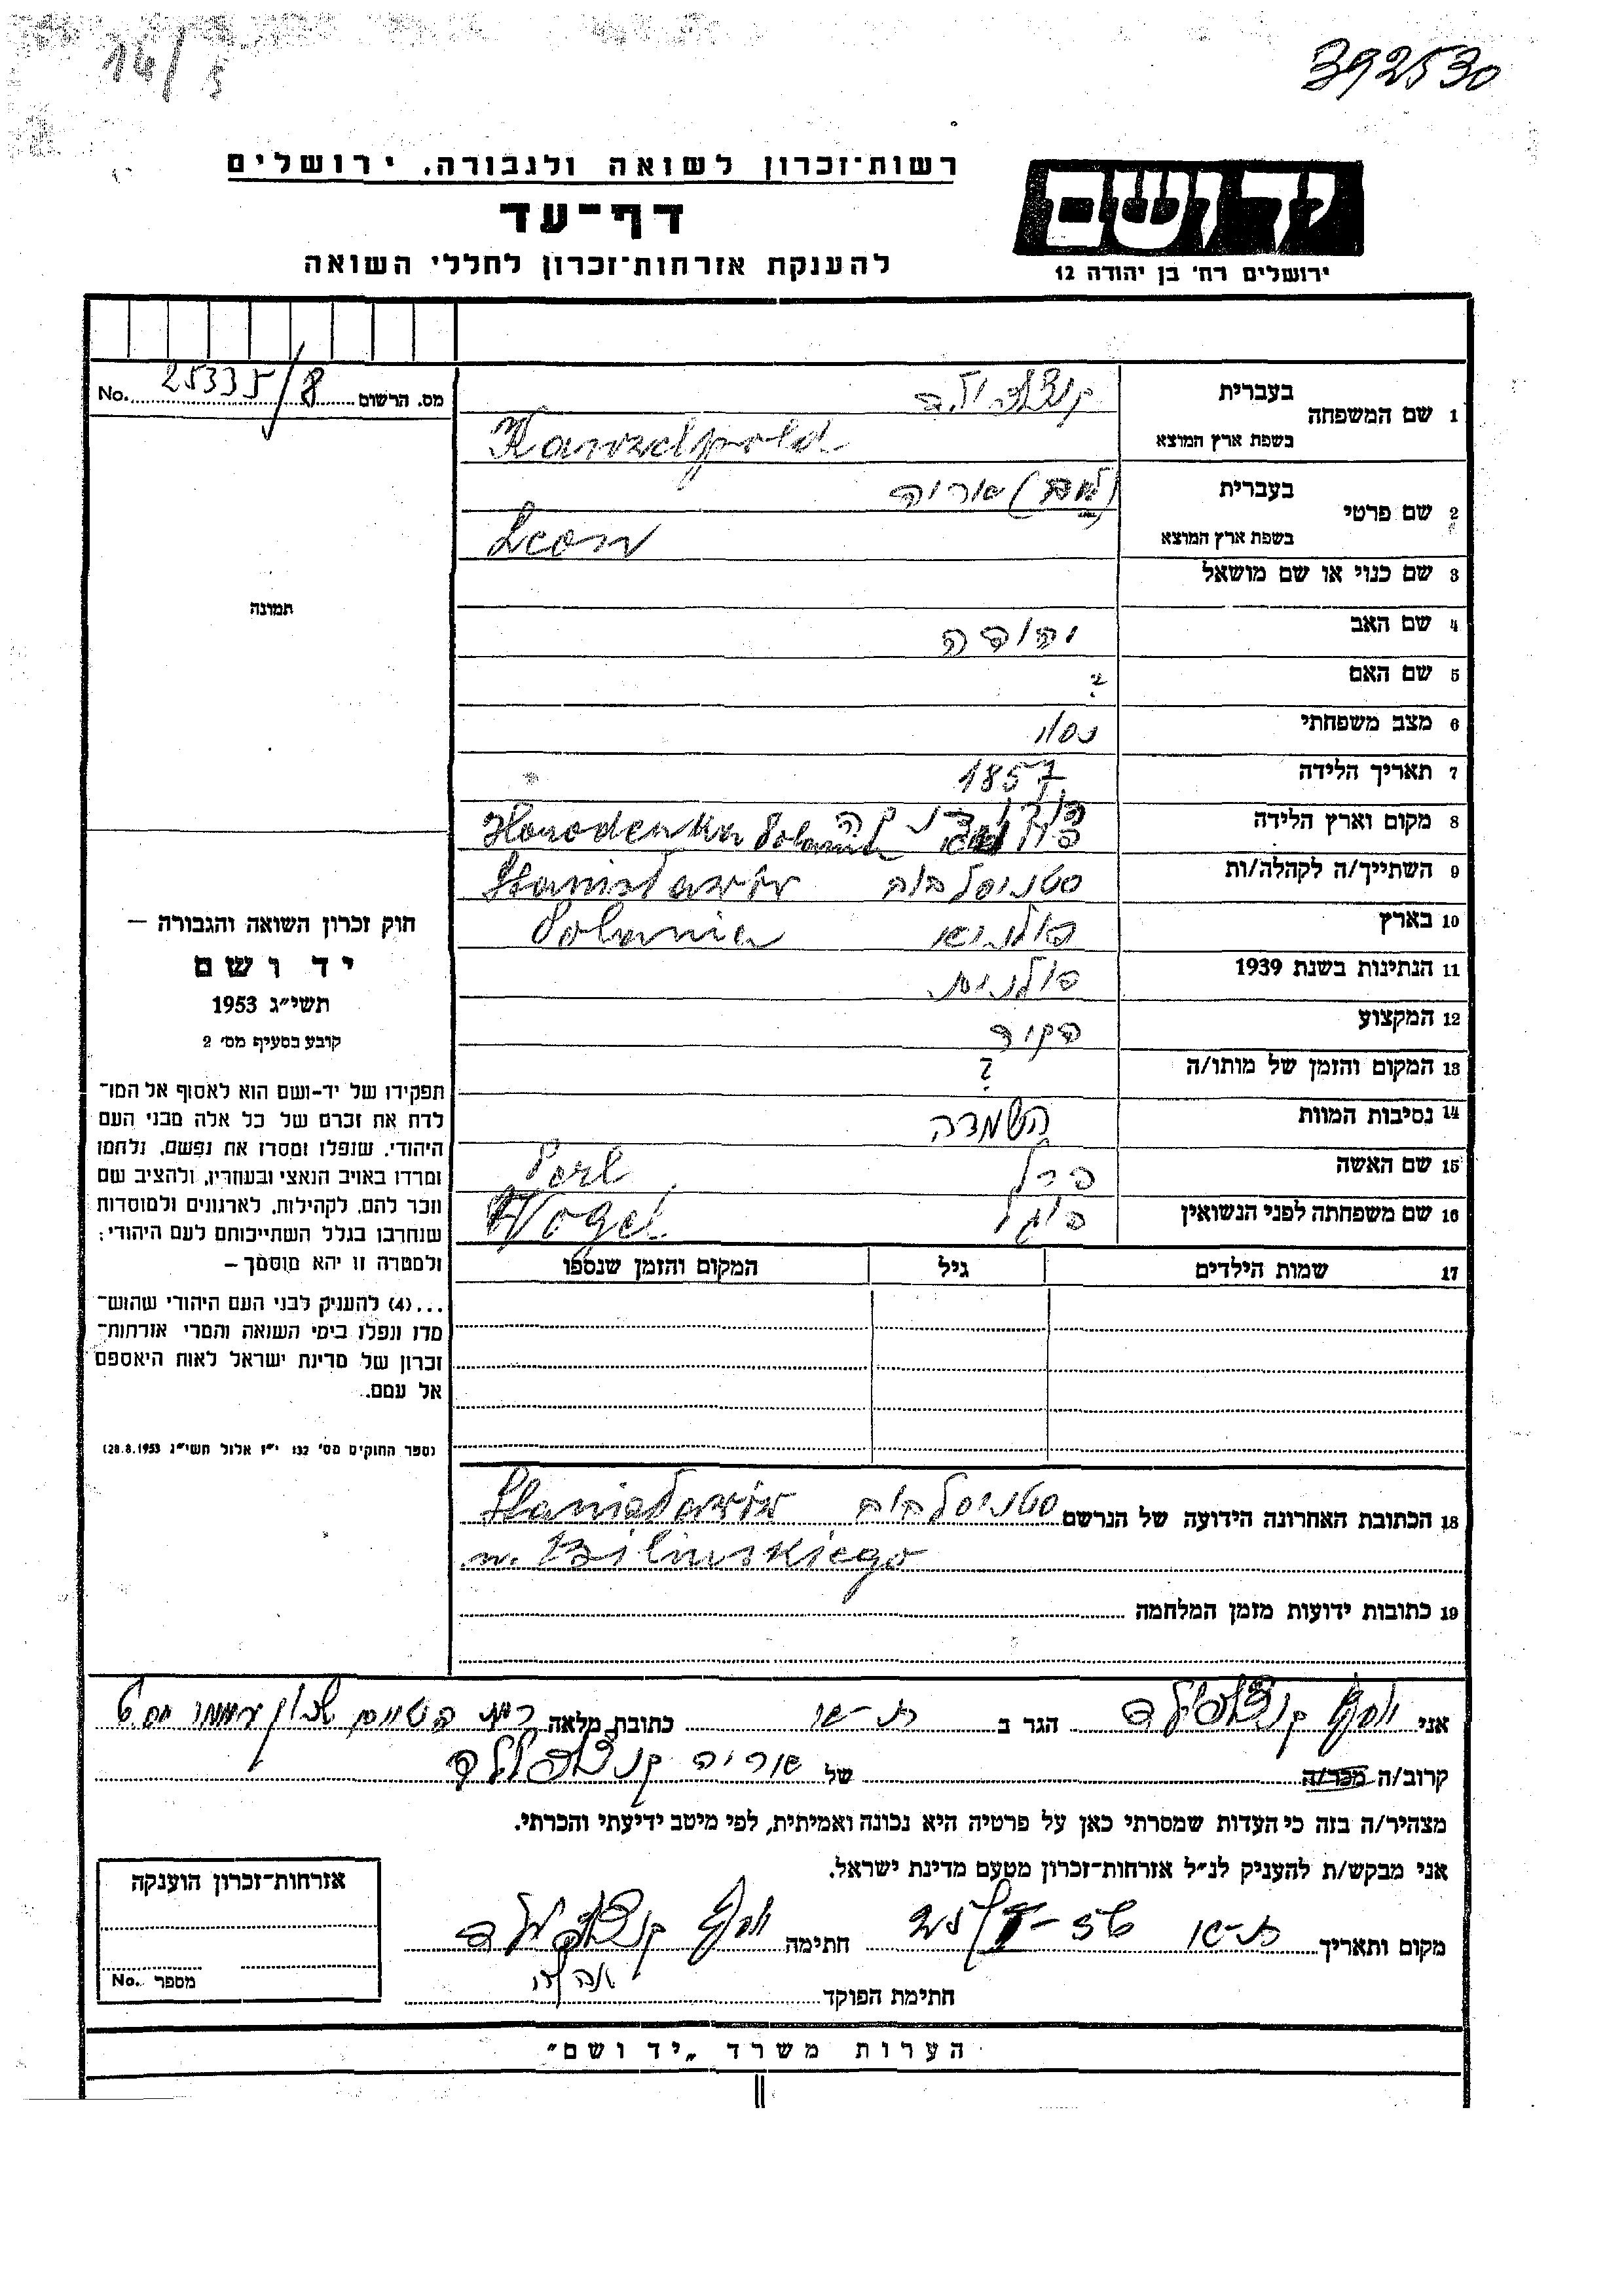 14/5
392530
רשות־זכרון לשואה ולגבורה, ירושלים
דף־עד
להענקת אזרחות־זכרון לחללי השואה
יד ושם
ירושלים רח' בן יהודה 12
מס. הרשום 25335/8 No.
1 שם המשפחה בעברית
בשפת ארץ המוצא Kanzelpold
2 שם פרטי בעברית (לייב) אריה
בשפת ארץ המוצא Leon
3 שם כנוי או שם מושאל
4 שם האב יהודה
5 שם האם ?
6 מצב משפחתי נשוי
7 תאריך הלידה 1857
8 מקום וארץ הלידה Horodenka
9 השתייך/ה לקהלה/ות סטניסלבוב Stanisławów
10 בארץ פולניא Polania
11 הנתינות בשנת 1939 פולנית
12 המקצוע פקיד
13 המקום והזמן של מותו/ה ?
14 נסיבות המוות השמדה
15 שם האשה פרל Perl
16 שם משפחתה לפני הנשואין פוגל Vogel
17 שמות הילדים גיל המקום והזמן שנספו
18 הכתובת האחרונה הידועה של הנרשם סטניסלבוב Stanisławów
Bilinskiego
19 כתובות ידועות מזמן המלחמה
תמונה
חוק זכרון השואה והגבורה —
יד ושם
תשי״ג 1953
קובע בסעיף מס׳ 2
תפקידו של יד־ושם הוא לאסוף אל המו־
לדת את זכרם של כל אלה מבני העם
היהודי, שנפלו ומסרו את נפשם, נלחמו
ומרדו באויב הנאצי ובעוזריו, ולהציב שם
וזכר להם, לקהילות, לארגונים ולמוסדות
שנחרבו בגלל השתייכותם לעם היהודי;
ולמטרה זו יהא מוסמך —
...(4) להעניק לבני העם היהודי שהוש־
מדו ונפלו בימי השואה והמרי אזרחות־
זכרון של מדינת ישראל לאות היאספם
אל עמם.
(ספר החוקים מס׳ 132 י״ז אלול תשי״ג 28.8.1953)
אני יוסף הגר ב ת-א כתובת מלאה
קרוב/ה מכר/ה של אריה
מצהיר/ה בזה כי העדות שמסרתי כאן על פרטיה היא נכונה ואמיתית, לפי מיטב ידיעתי והכרתי.
אני מבקש/ת להעניק לנ״ל אזרחות־זכרון מטעם מדינת ישראל.
מקום ותאריך ת-א חתימה יוסף
חתימת הפוקד
אזרחות־זכרון הוענקה
מספר No.
הערות משרד „יד ושם״